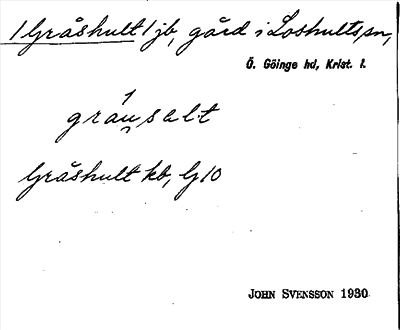 /Gråshult/ jb, gård i Loshults sn,
Ö. Göinge hd, Krist. l.
gråṉselt
Gråshult kb, G 10
JOHN SVENSSON 1930